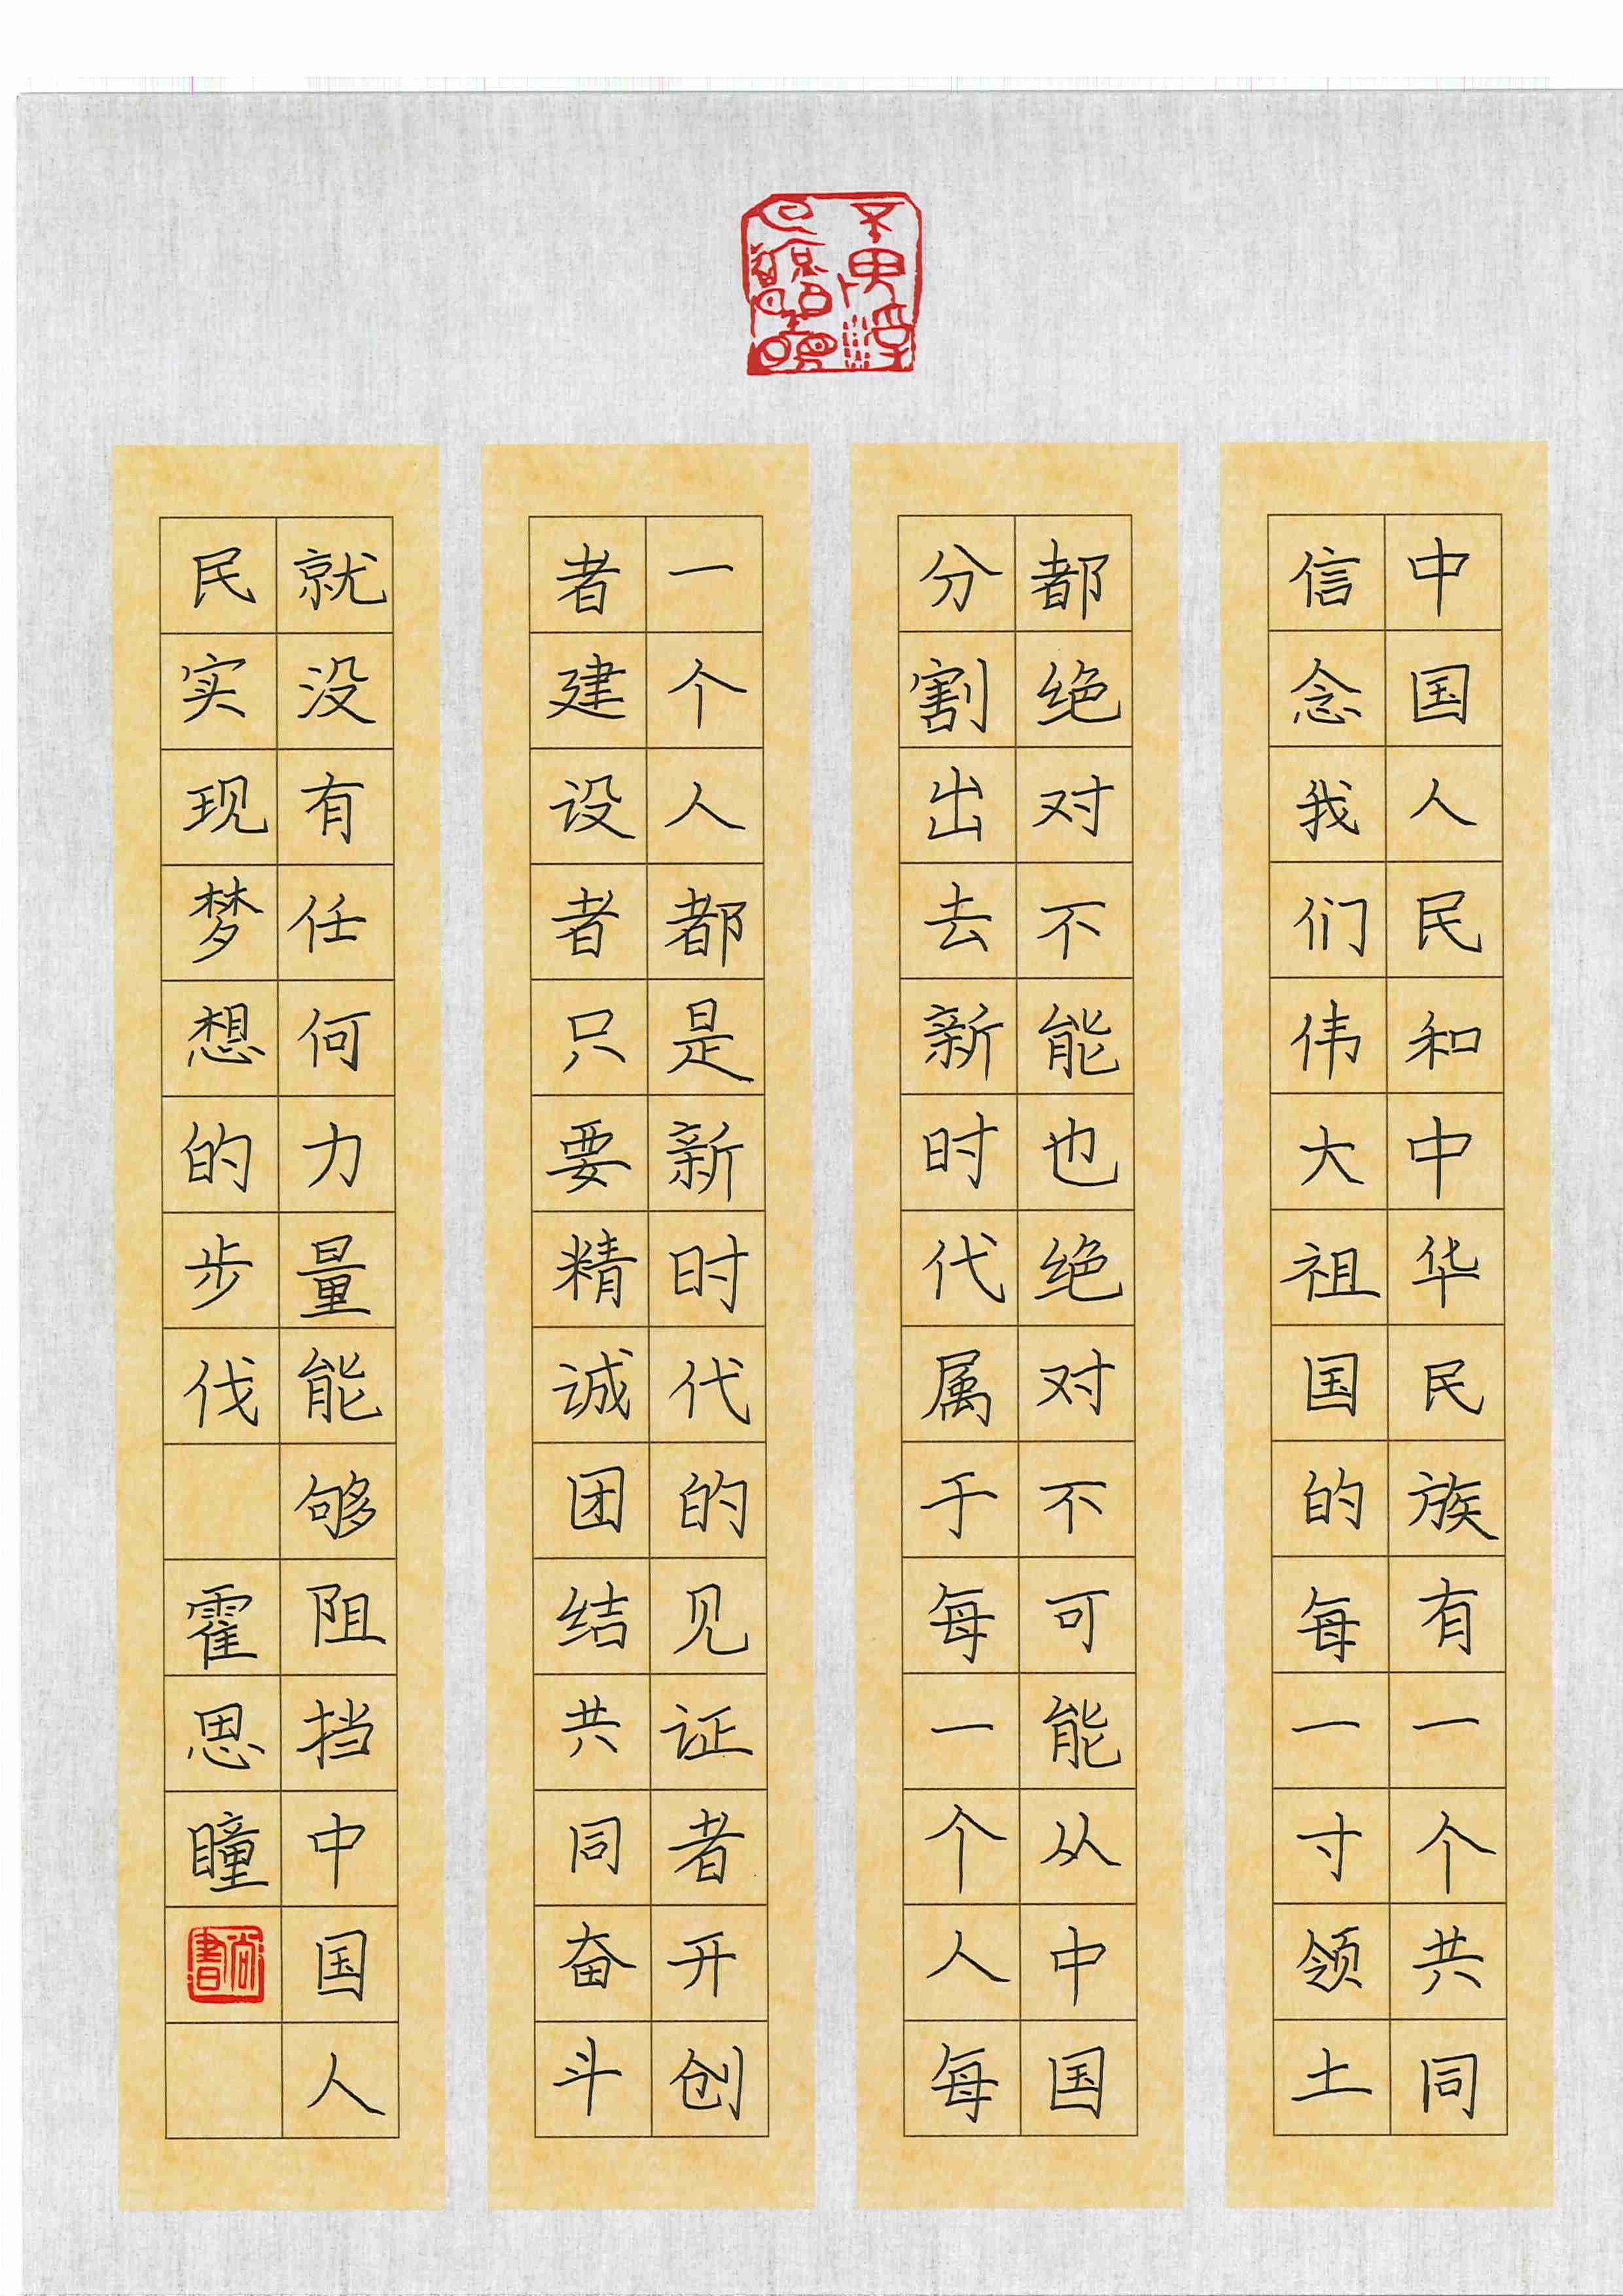 中国人民和中华民族有一个共同
信念我们伟大祖国的每一寸领土
都绝对不能也绝对不可能从中国
分割出去新时代属于每一个人每
一个人都是新时代的见证者开创
者建设者只要精诚团结共同奋斗
就没有任何力量能够阻挡中国人
民实现梦想的步伐 霍思瞳
尚書